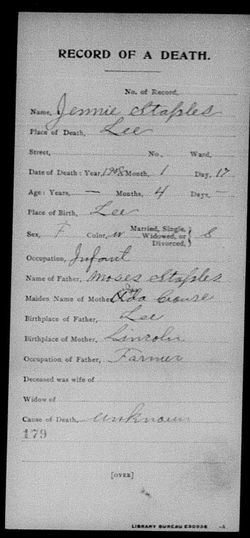 RECORD OF A DEATH.
No. of Record,
Name, Jennie Staples
Place of Death, Lee
Street, No. Ward,
Date of Death: Year, 1908 Month, 1 Day, 17
Age: Years, — Months, 4 Days, —
Place of Birth, Lee
Sex, F Color, W Married, Single, Widowed, or Divorced, S
Occupation, Infant
Name of Father, Moses Staples
Maiden Name of Mother,
Birthplace of Father, Lee
Birthplace of Mother, Lincoln
Occupation of Father, Farmer
Deceased was wife of
Widow of
Cause of Death, unknown
179
[OVER]
LIBRARY BUREAU